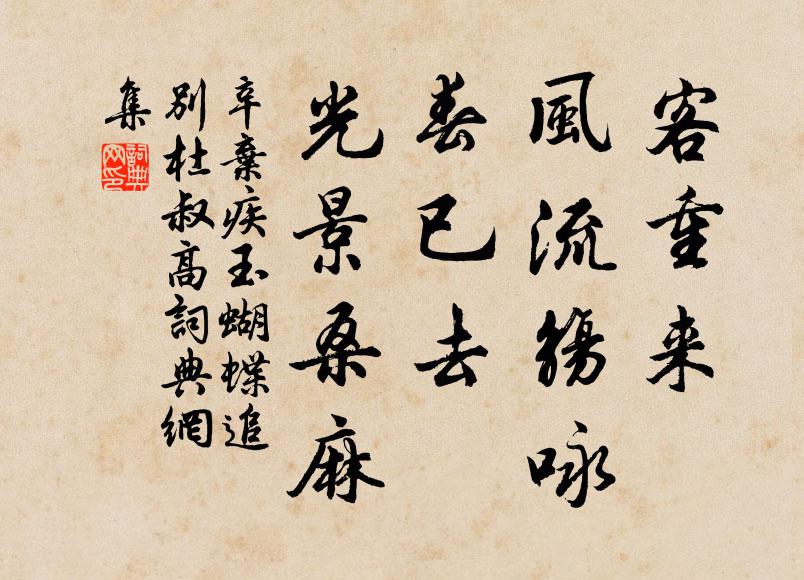 客重来
風流觴咏
春已去
光景桑麻
辛棄疾玉蝴蝶追
別杜叔高詞典網
集
詞典
网印